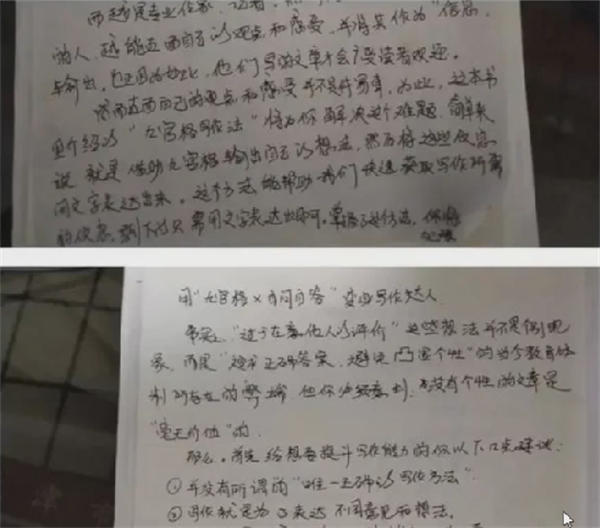 而越是专业作家、记者，
的人，越能直面自己的观点和感受，并将其作为"信息"
输出，也正因为如此，他们写的文章才会广受读者欢迎。
然而直面自己的观点和感受并不是件易事，为此，这本书
里介绍的"九宫格写作法"将为你解决这个难题。简单来
说，就是借助九宫格输出自己的想法，然后将这些信息
用文字表达出来。这个方法能帮助我们快速获取写作所需
的信息，剩下的只需用文字表达出即可。掌握了这个方法，你将
用"九宫格×自问自答"变身写作达人
事实上，"过于在意他人的评价"这些想法并不是个别现
象，而是"追求正确答案，避免凸显个性"的当今教育体
制所存在的弊端。但你必须意识到，没有个性的文章是
"毫无价值"的。
那么，首先给想要提升写作能力的你以下几点建议：
①并没有所谓的"唯一正确的写作方法"
②写作就是为了表达不同意见和想法。